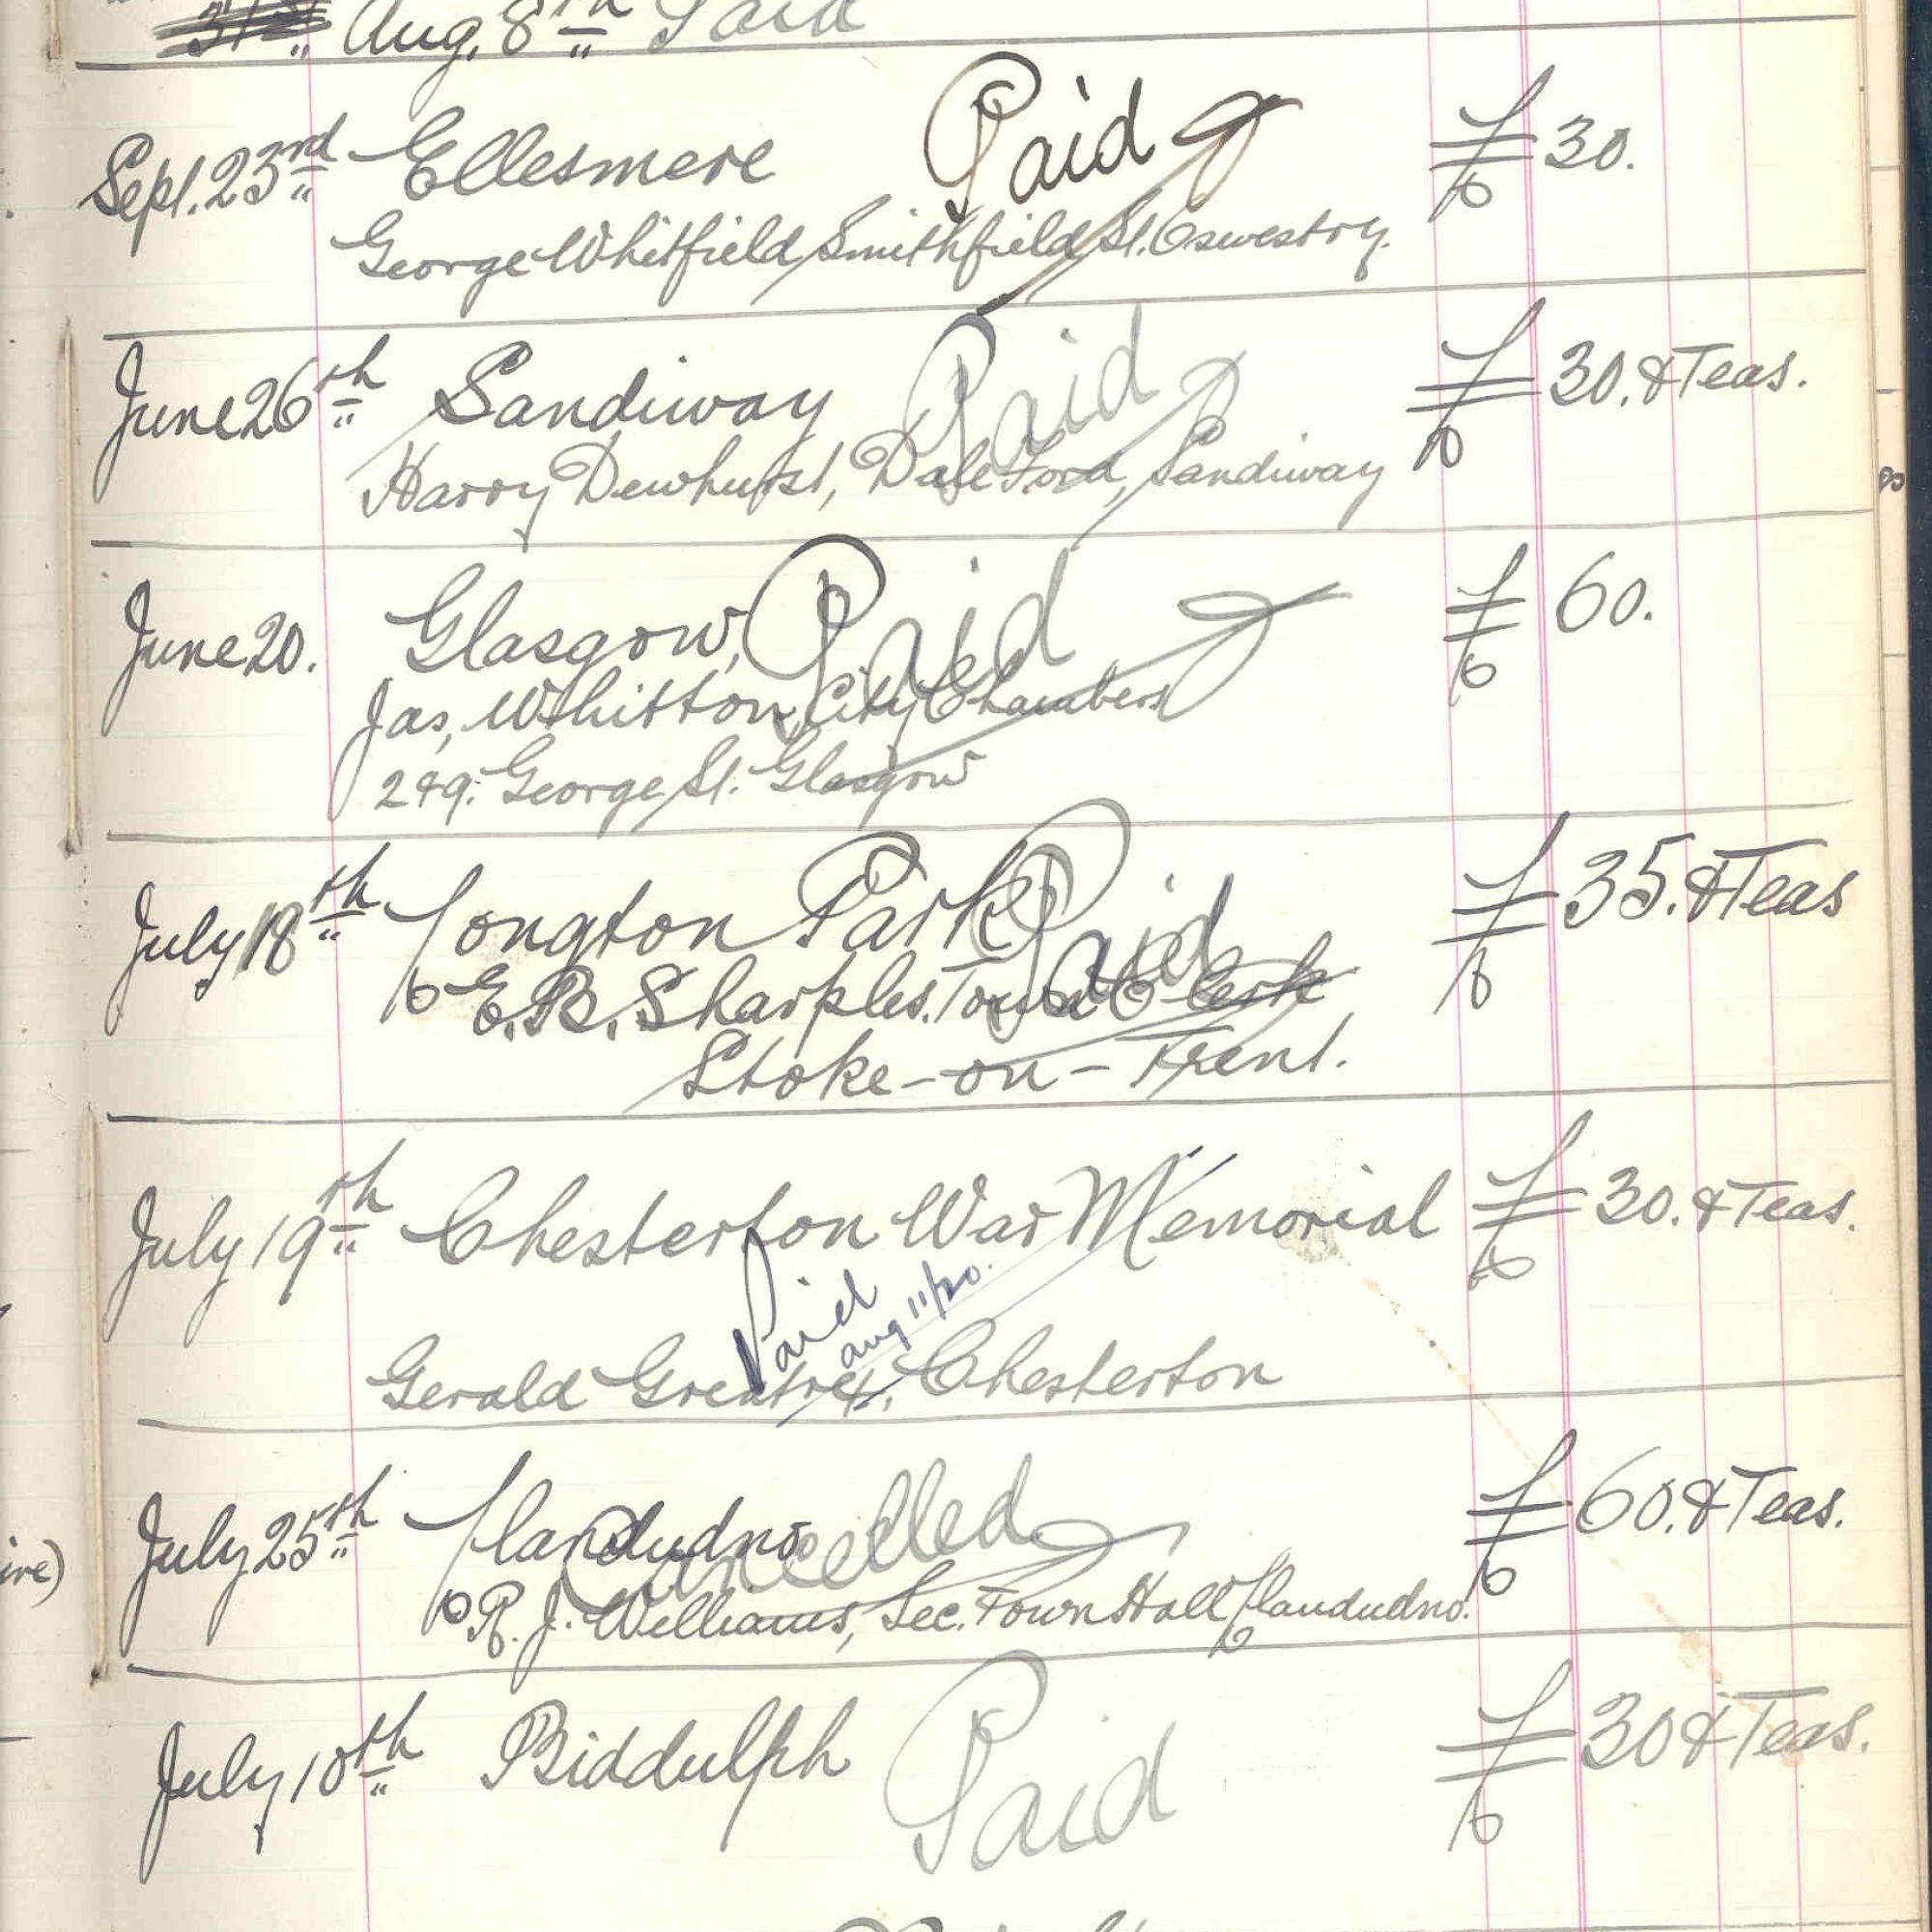 31st Aug. 8th Paid
Sept. 23rd Ellesmere Paid £30.
George Whitfield, Smithfield St. Oswestry.
June 26th Sandiway Paid £30. & Teas.
Harry Dewhurst, Dale Ford, Sandiway
June 20. Glasgow, Paid £60.
Jas, Whitton, City Chambers
249. George St. Glasgow
July 18th Longton Park Paid £35. & Teas
E. B. Sharples. Town Clerk
Stoke-on-Trent.
July 19th Chesterton War Memorial £30. & Teas.
Paid
Aug 11/20.
Gerald Greatrex, Chesterton
July 25th Llandudno Cancelled £60. & Teas.
ire)
R. J. Williams, Sec. Town Hall Llandudno.
July 10th Biddulph Paid £30 & Teas.